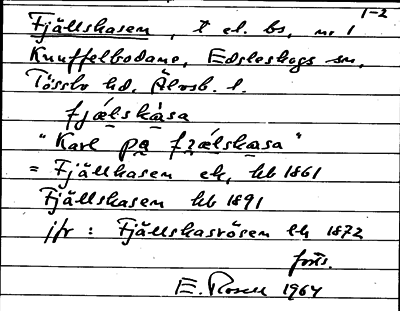 1-2
Fjällskasen, t el. bs, nr 1
Knuffelbodane, Edsleskogs sn,
Tössbo hd, Älvsb. l.
fjǽlskàsa
"Karl pa fjǽlskasa"
= Fjällkasen ek, hb 1861
Fjällskasen hb 1891
jfr : Fjällskasrösen LM 1872
forts.
E. Rosell 1964